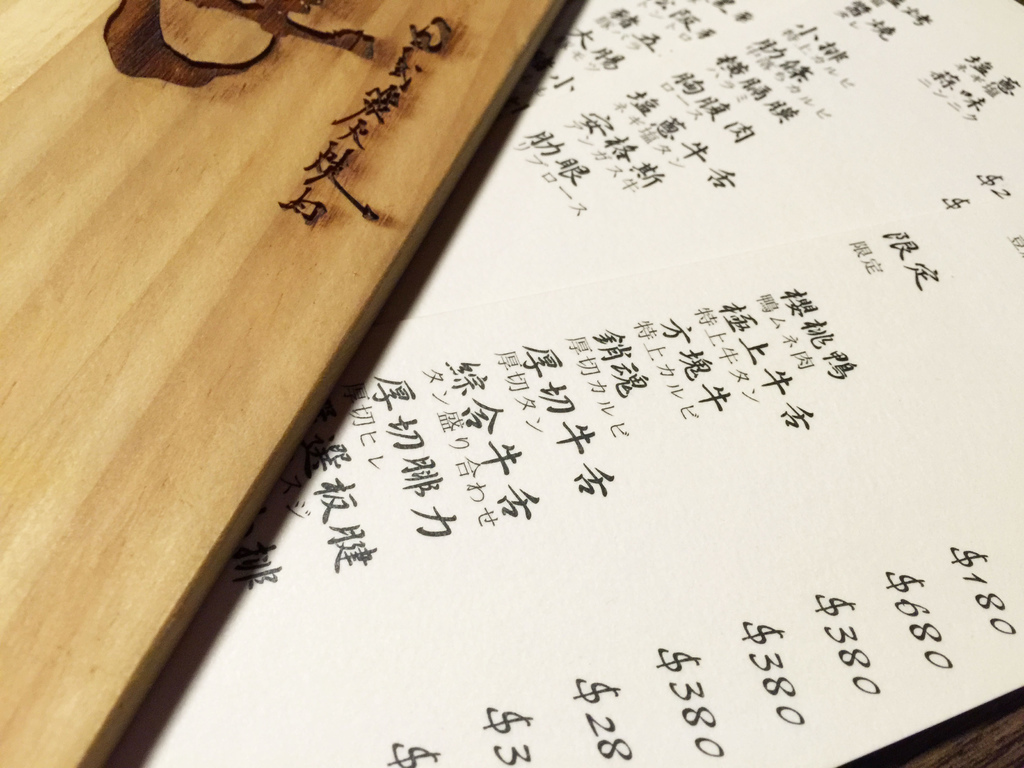 鹽烤
醬燒
塩蔥
ネギ塩
蒜味
ニンニク
小排
特上カルビ
肋條
中落カルビ
橫膈膜
ハラミ
胸腹肉
ロース
塩蔥牛舌
ネギ塩タン
安格斯
アンガス牛
肋眼
リブロース
松阪豬
大腸
$2
$
限定
限定
櫻桃鴨
鴨ムネ肉
$180
極上牛舌
特上牛タン
$680
方塊牛
特上カルビ
$380
銷魂
厚切カルビ
$380
厚切牛舌
厚切タン
$380
綜合牛舌
タン盛り合わせ
$28
厚切腓力
厚切ヒレ
$3
選板腱
スジ
$
排
燒肉